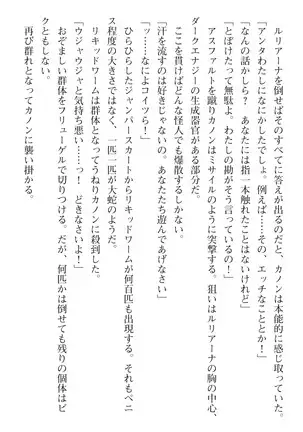 ルリアーナを倒せばそのすべてに答えが出るのだと、カノンは本能的に感じ取っていた。
「アンタわたしになにかしたでしょ。例えば……その、エッチなこととか！」
「なんの話かしら？　あなたには指一本触れたことはないけれど」
「とぼけたって無駄よ。わたしの勘がそう言っているの！」
アスファルトを蹴りカノンはミサイルのように突撃する。狙いはルリアーナの胸の中心、
ダークエナジーの生成器官がある部分だ。
ここを貫けばどんな怪人でも爆散するしかない。
「汗を流すのは好きじゃないの。あなたたち遊んであげなさい」
「ッ……なによコイツら！」
ひらひらしたジャンパースカートからリキッドワームが何百匹も出現する。それもペニ
ス程度の大きさではなく、一匹一匹が大蛇のようだ。
リキッドワームは群体となってうねりカノンに殺到した。
「ウジャウジャと気持ち悪い……っ！　どきなさいよ！」
おぞましい群体をフリューゲルで切りつける。だが、何匹かは倒せても残りの個体はビ
クともしない。
再び群れとなってカノンに襲い掛かる。